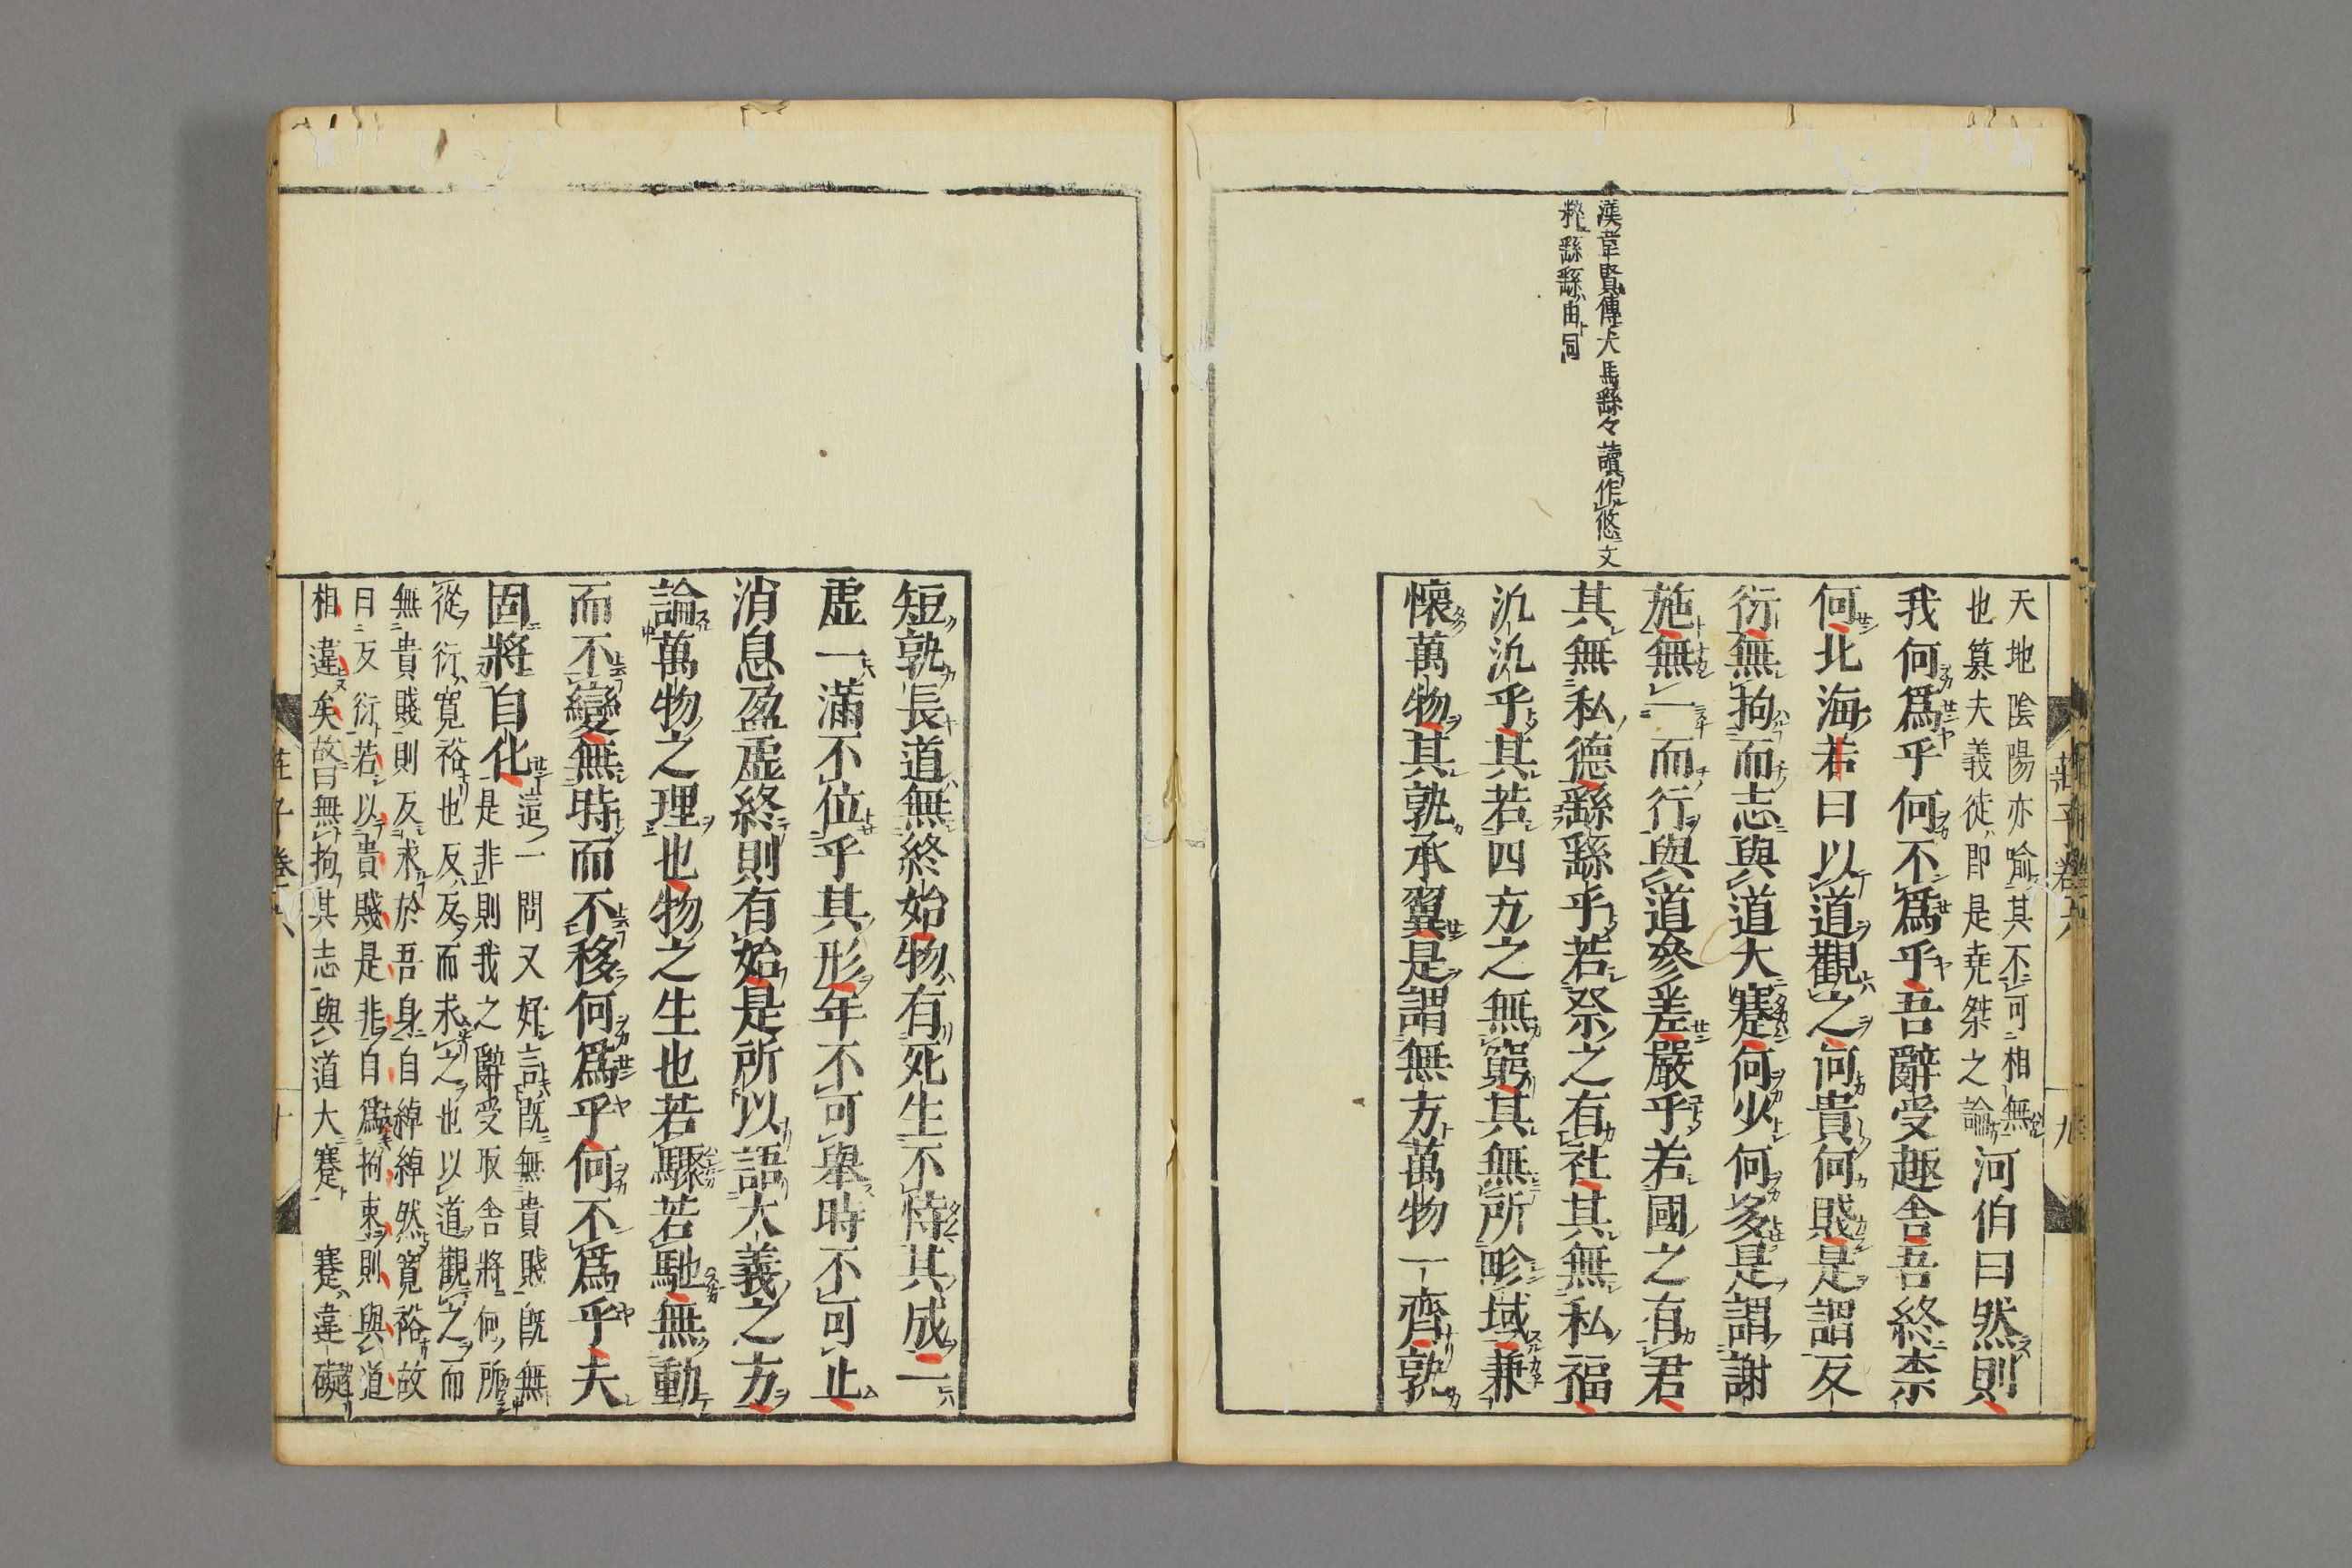 漢韋賢傳犬馬繇々讀作悠文
粹繇繇由同
天地陰陽亦喻其不可相無
也篡夫義徒即是堯桀之論
河伯曰然則
我何爲乎何不爲乎吾辭受趣舍吾終柰
何北海若曰以道觀之何貴何賤是謂反
衍無拘而志與道大蹇何少何多是謂謝
施無一而行與道參差嚴乎若國之有君
其無私德繇繇乎若祭之有社其無私福
氿氿乎其若四方之無窮其無所畛域兼
懷萬物其孰承翼是謂無方萬物一齊孰
短孰長道無終始物有死生不恃其成一
虛一滿不位乎其形年不可舉時不可止
消息盈虛終則有始是所以語大義之方
論萬物之理也物之生也若驟若馳無動
而不變無時而不移何爲乎何不爲乎夫
固將自化
這一問又好言既無貴賤既無
是非則我之辭受取舍將何所
從衍寬裕也反反而求之也以道觀之而
無貴賤則反求於吾身自綽綽然寬裕故
曰反衍若以貴賤是非自爲拘束則與道
相違矣故曰無拘其志與道大蹇 蹇違礙
莊子卷六
九
莊子卷六
十